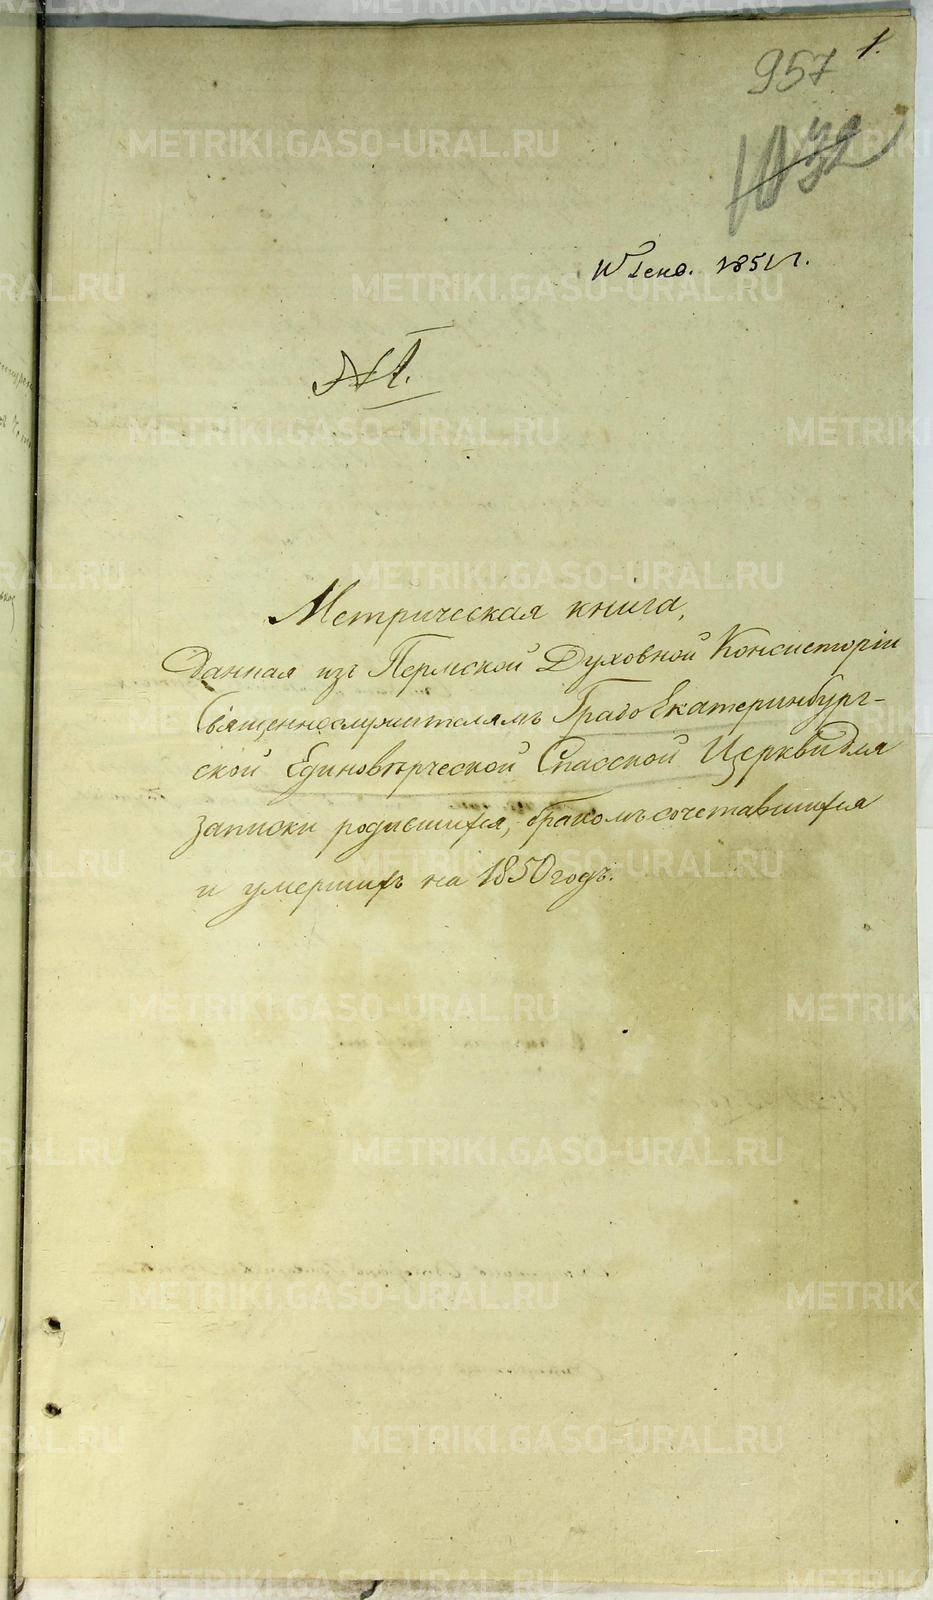 957 1.
1850 г.
№ 1.
Метрическая книга,
данная изъ Пермской Духовной Консисторіи
Священнослужителямъ Градо Екатеринбург-
ской Единовѣрческой Спасской Церкви для
записки родившихся, бракомъ сочетавшихся
и умершихъ на 1850 годъ.
METRIKI.GASO-URAL.RU